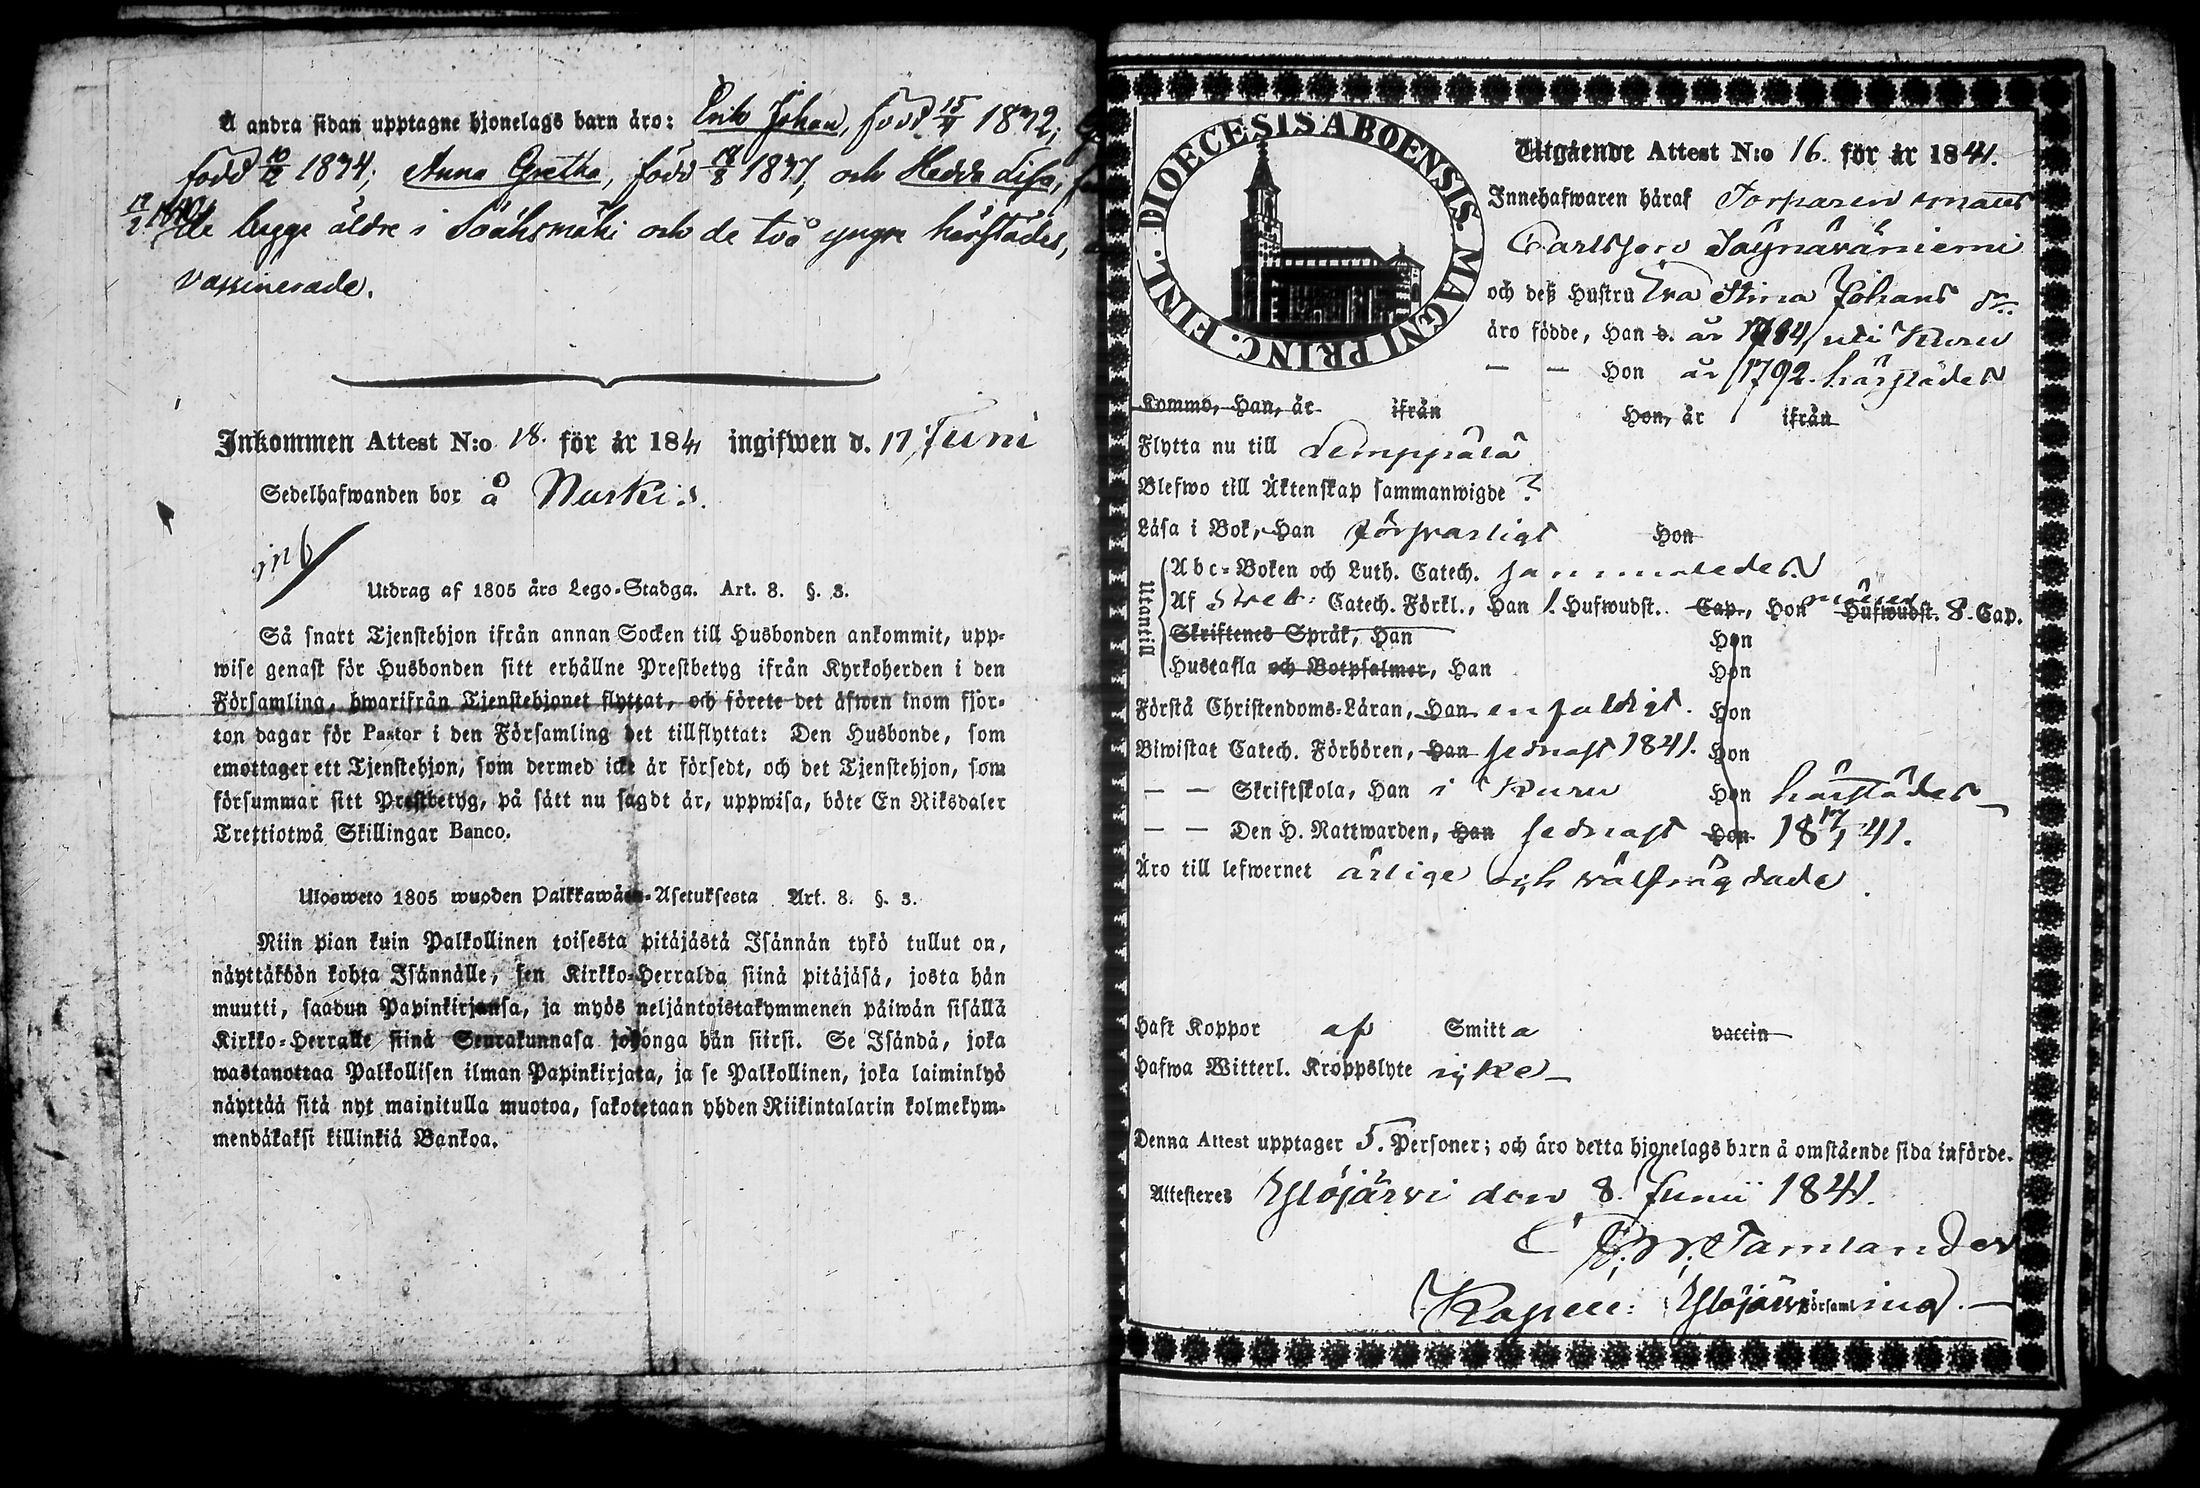 Å andra sidan upptagne hjonelags barn äro: Erik Johan, född 15/4 1832;
född 10/12 1834; Anna Gretha, född 1837, och Hedda Lisa,
de begge äldre i Soåhsmäki och de två yngre härstädes,
vaxinerade.
Inkommen Attest N:o 18. för år 1841 ingifwen d. 17 Juni
Sedelhafwanden bor å Nurkis.
Utdrag af 1805 års Lego-Stadga. Art. 8. §. 3.
Så snart Tjenstehjon ifrån annan Socken till Husbonden ankommit, upp-
wise genast för Husbonden sitt erhållne Prestbetyg ifrån Kyrkoherden i den
Församling, hwarifrån Tjenstehjonet flyttat, och förete det äfwen inom fjor-
ton dagar för Pastor i den Församling det tillflyttat: Den Husbonde, som
emottager ett Tjenstehjon, som dermed icke är försedt, och det Tjenstehjon, som
försummar sitt Prestbetyg, på sätt nu sagdt är, uppwisa, böte En Riksdaler
Trettiotwå Skillingar Banco.
Ulosweto 1805 wuoden Palkkawäen-Asetuksesta Art. 8. §. 3.
Niin pian kuin Palkollinen toisesta pitäjästä Isännän tykö tullut on,
näyttäköön kohta Isännälle, sen Kirkko-Herralda siinä pitäjäsä, josta hän
muutti, saadun Papinkirjansa, ja myös neljäntoistakymmenen päiwän sisällä
Kirkko-Herralle siinä Seurakunnasa johonga hän siirsi. Se Isändä, joka
wastanottaa Palkollisen ilman Papinkirjata, ja se Palkollinen, joka laiminlyö
näyttää sitä nyt mainitulla muotoa, sakotetaan yhden Riikintalarin kolmekym-
mendäkaksi killinkiä Bankoa.
DIOECESIS ABOENSIS. MAGNI PRINC. FINL.
Utgående Attest N:o 16. för år 1841.
Innehafwaren häraf Torparen Mats
Carlsson Jäynäväniemi
och deß Hustru Eva Stina Johans dr.
äro födde, Han d. år 1784 uti Kuru
— — Hon år 1792. härstädes
Kommo, Han, år ifrån Hon, år ifrån
Flytta nu till Lemppälä
Blefwo till Äktenskap sammanwigde ?
Läsa i Bok, Han försvarligt Hon
Utantill
Abc-Boken och Luth. Catech. sammaledes.
Af Sveb: Catech. Förkl., Han 1. Hufwudst. Cap., Hon Hufwudst. 8. Cap.
Skriftenes Språk, Han Hon
Hustafla och Botpsalmer, Han Hon
Förstå Christendoms-Läran, Han enfaldigt. Hon
Biwistat Catech. Förhören, Han sednast 1841. Hon
— — Skriftskola, Han i Kuru Hon härstädes
— — Den H. Nattwarden, Han sednast Hon 18 17/1 41.
Äro till lefwernet ärlige och välfrägdade.
Haft Koppor af Smitta vaccin
Hafwa Witterl. Kroppslyte icke
Denna Attest upptager 5. Personer; och äro detta hjonelags barn å omstående sida införde.
Attesteres Ylöjärvi den 8. Junii 1841.
W. Tamlander
Kapell: i Ylöjärvi församling.